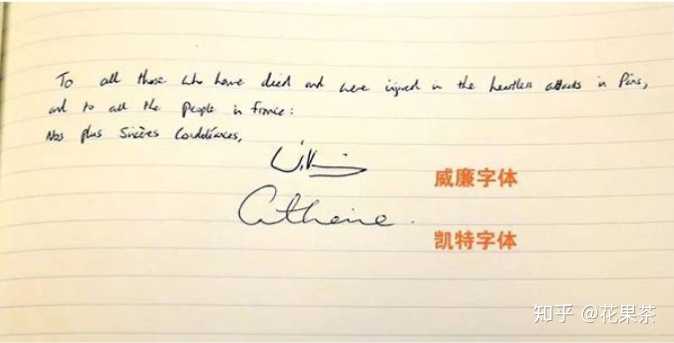 To all those who have died and were injured in the heartless attacks in Paris,
and to all the people in France:
Nos plus Sincères Condoléances,
William
威廉字体
Catherine.
凯特字体
知乎 @花果茶